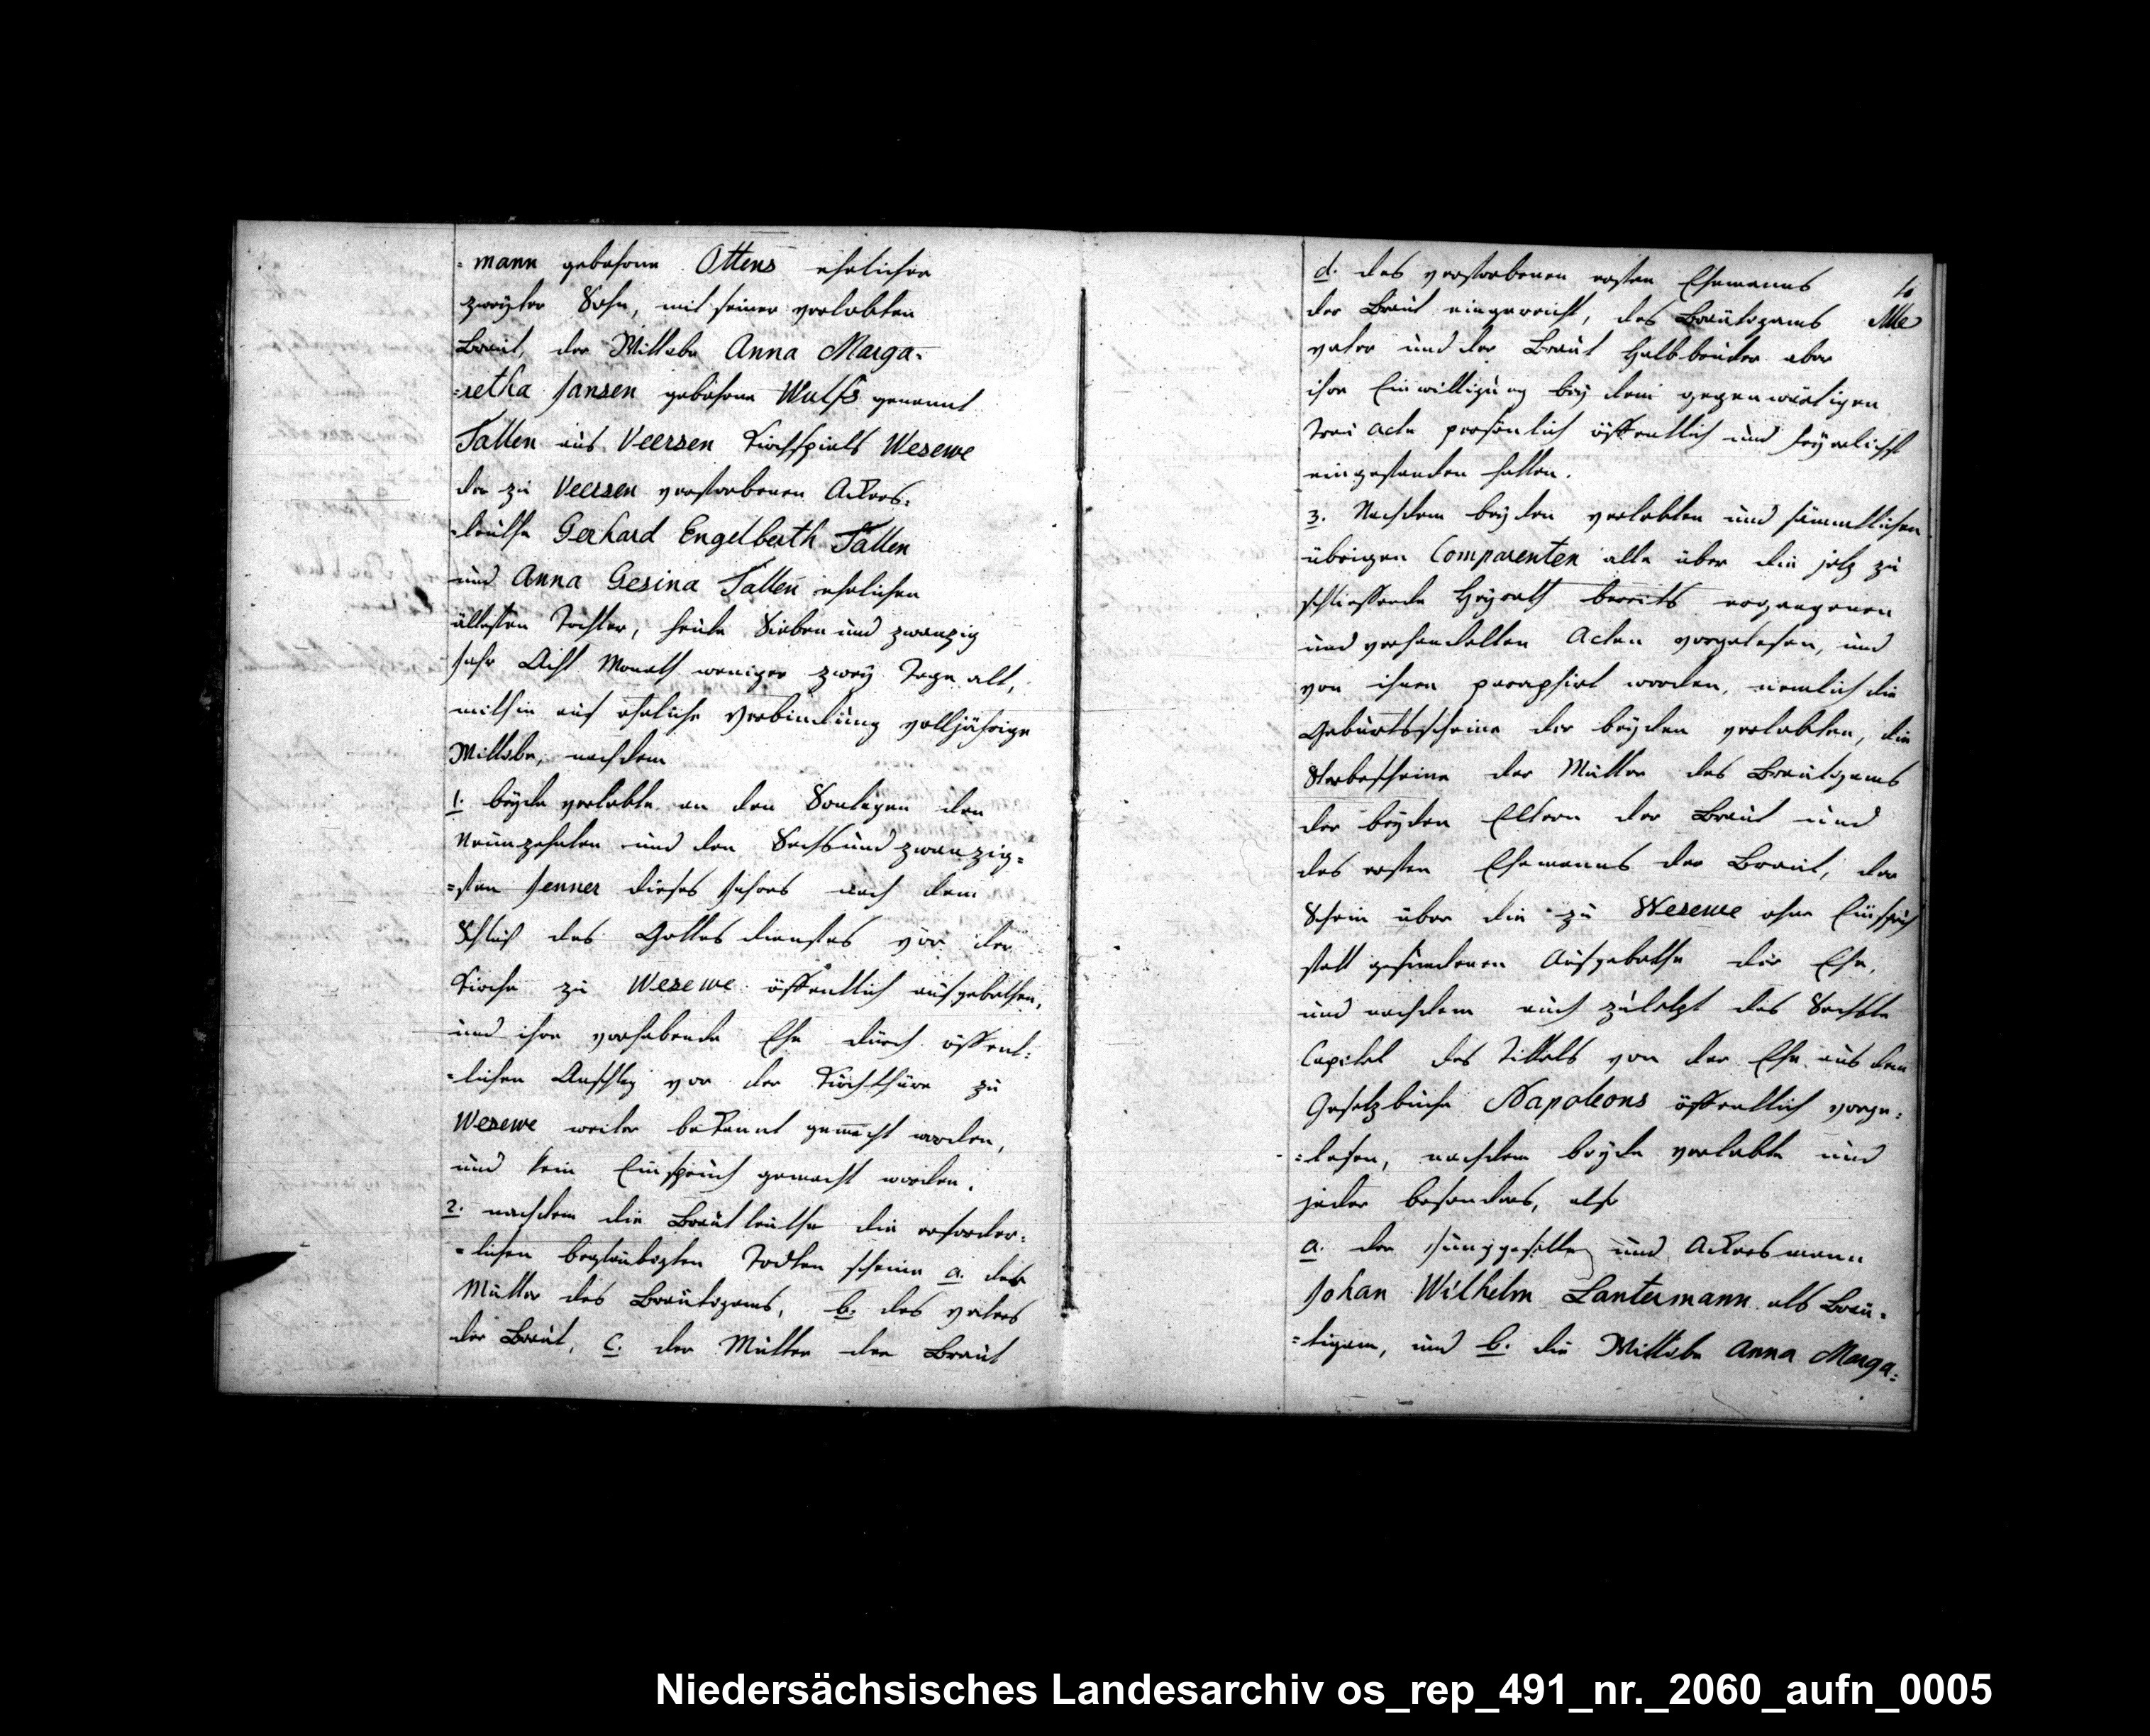 =mann gebohrne Ottens ehelicher
zweyter Sohn, mit seiner verlobten
Braut, der Wittwe Anna Marga=
=retha Jansen gebohrne Wulfs genannt
Tallen aus Veersen Kirchspiels Wesewe
der zu Veersen verstorbenen Ackers=
=leuthe Gerhard Engelberth Tallen
und Anna Gesina Tallen ehelichen
ältesten Tochter, heute Sieben und zwanzig
Jahr Acht Monath weniger zwey Tage alt,
mithin auf eheliche Verbindung volljährige
Wittwe, nachdem
1. beyde verlobte an den Sontagen den
Neunzehnten und den Sechs und zwanzig=
=sten Jenner dieses Jahres nach dem
Schluß des Gottes dienstes vor der
Kirche zu Wesewe öffentlich aufgebothen,
und ihre vorhabende Ehe durch öffent=
=lichen Anschlag vor der Kirchthüre zu
Wesewe weiter bekannt gemacht worden,
und kein Einspruch gemacht worden.
2. nachdem die Brautleuthe die erforder=
=lichen beglaubigten Todten scheine a. der
Mutter des Bräutigams, b. des vaters
der Braut, c. der Mutter der Braut
d. des verstorbenen ersten Ehemanns
der Braut eingereicht, des Bräutigams
vater und der Braut Halbbruder aber
ihre Einwilligung bey dem gegenwärtigen
Trau acte persönlich öffentlich und feyerlichst
eingestanden hatten.
3. Nachdem beyden verlobten und sämmtlichen
übrigen Comparenten alle über die jetz zu
schliessende Heyrath bereits ergangenen
und verhandelten Acten vorgelesen, und
von ihnen paraphirt worden, nemlich die
Geburtsscheine der beyden verlobten, die
Sterbescheine der Mutter des Bräutigams
der beyden Eltern der Braut und
des ersten Ehemanns der Braut, der
Schein über die zu Wesewe ohne Einspruch
statt gefundenen Aufgebothe der Ehe,
und nachdem auch zuletzt das Sechste
Capitel des Tittels von der Ehe aus dem
Gesetzbuche Napoleons öffentlich vorge=
=lesen, nachdem beyde verlobte und
jeder besonders, also
a. der Junggeselle und Ackersmann
Johan Wilhelm Lantermann als Bräu=
=tigam, und b. die Wittwe Anna Marga=
Niedersächsisches Landesarchiv os_rep_491_nr._2060_aufn_0005